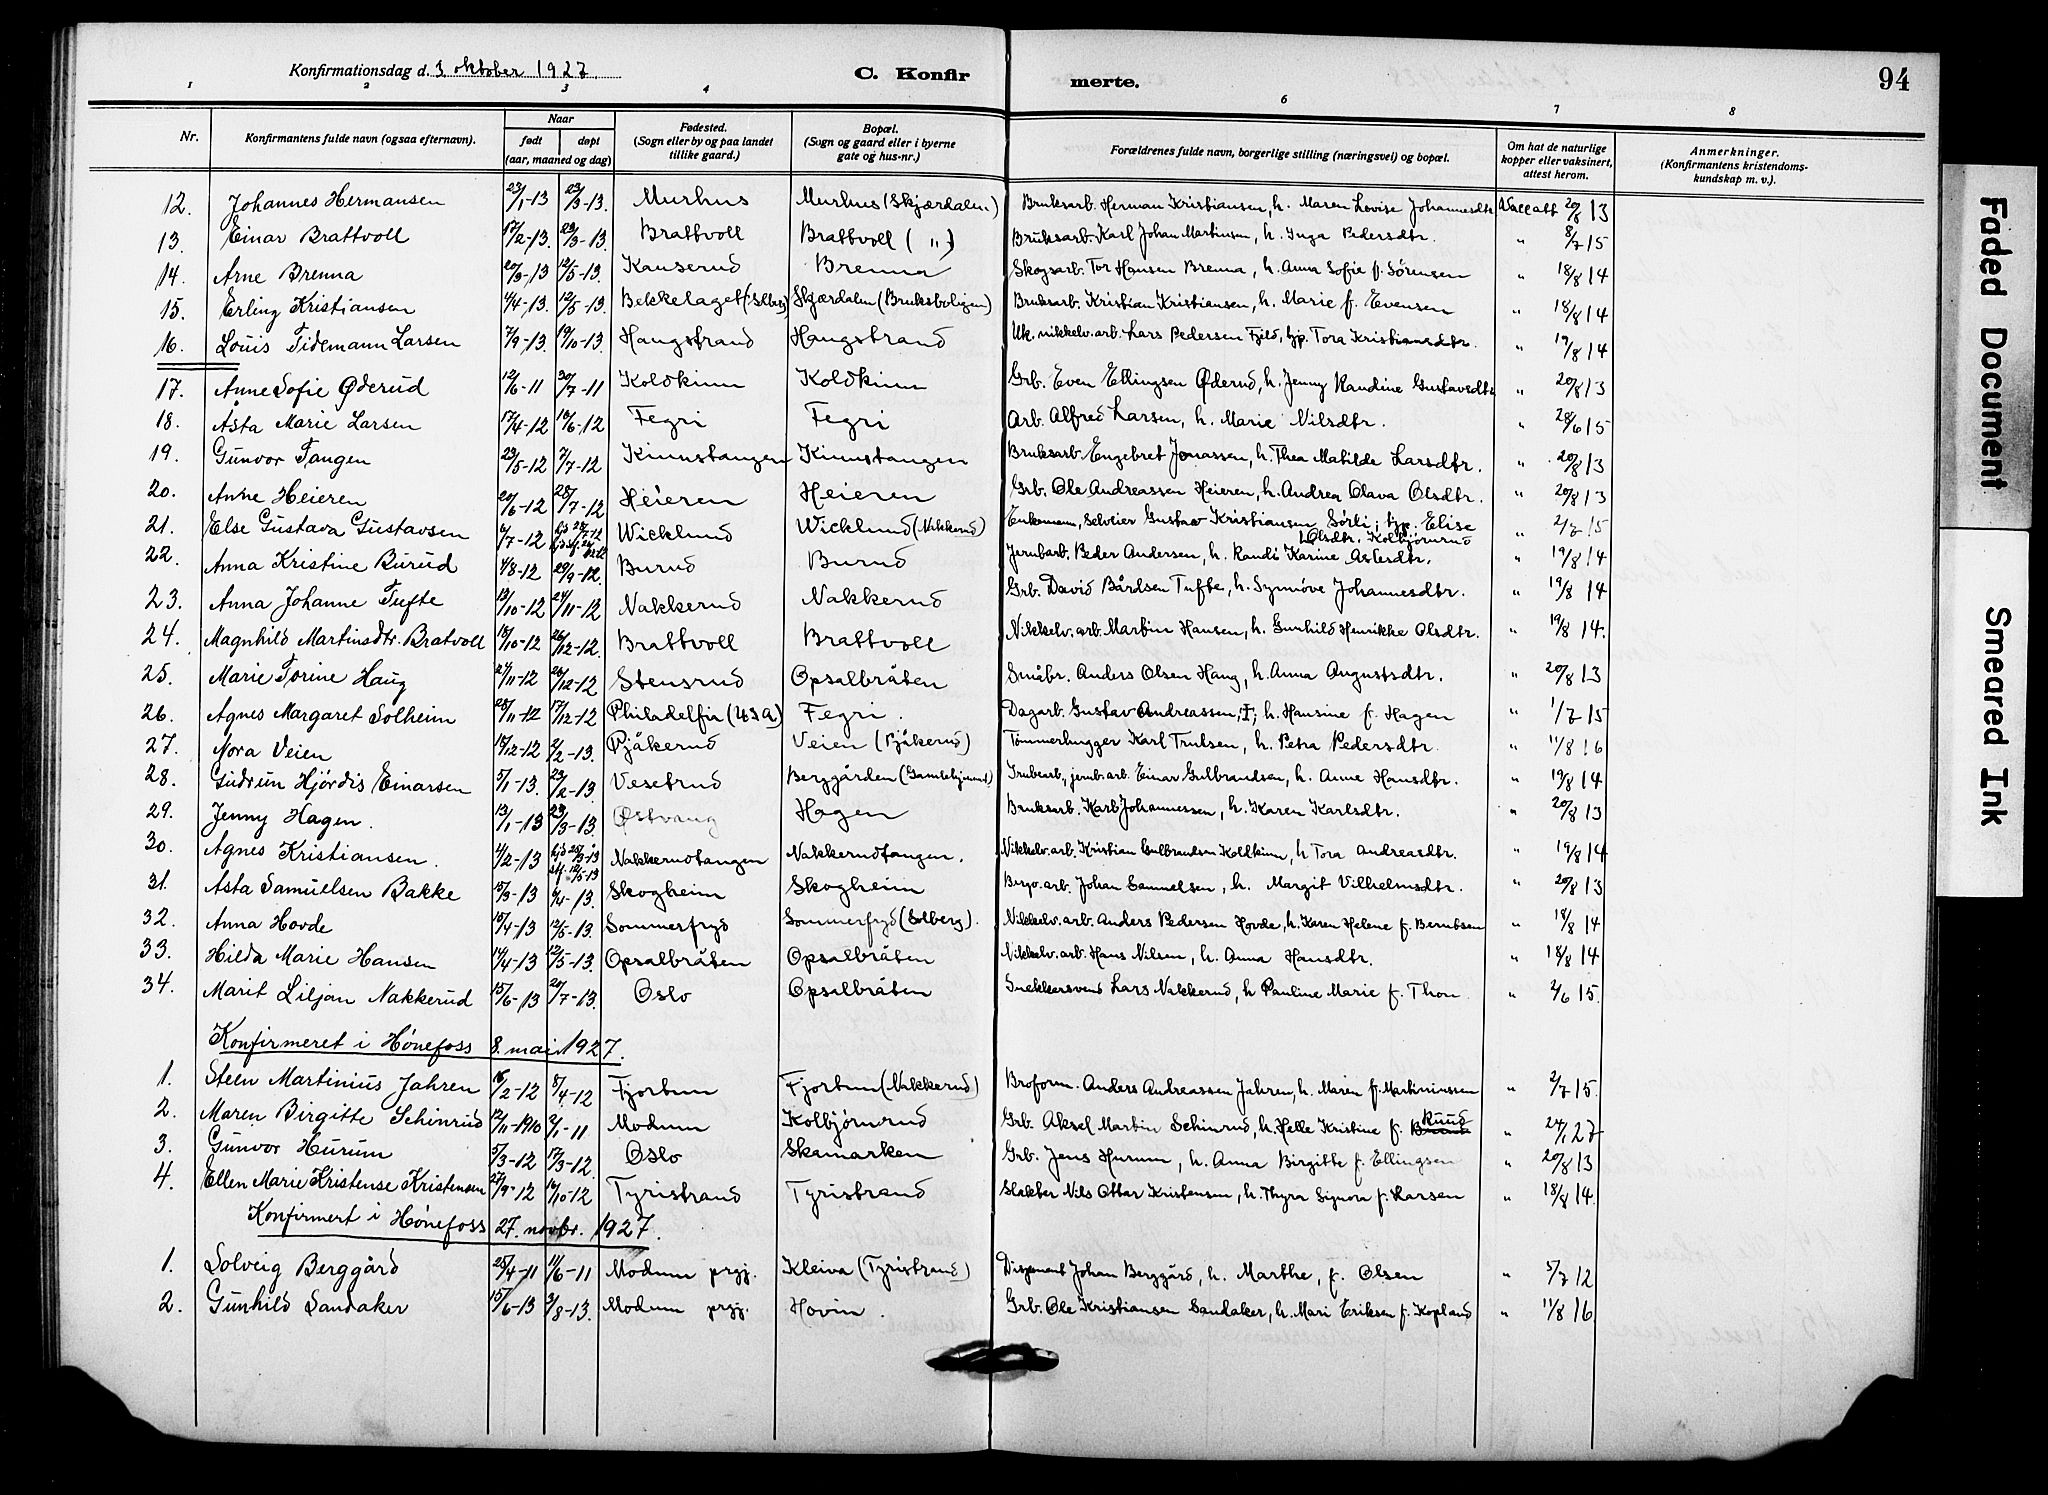 Konfirmationsdag d. 3 oktober 1927. C. Konfirmerte. 94
1 2 3 4 6 7 8
Nr. Konfirmantens fulde navn (ogsaa efternavn). Naar født døpt (aar, maaned og dag) Fødested. (Sogn eller by og paa landet tillike gaard.) Bopæl. (Sogn og gaard eller i byerne gate og hus-nr.) Forældrenes fulde navn, borgerlige stilling (næringsvei) og bopæl. Om hat de naturlige kopper eller vaksinert, attest herom. Anmerkninger. (Konfirmantens kristendomskundskap m. v.).
12. Johannes Hermansen 23/1-13 23/3-13. Murhus Murhus (Skjærdalen) Bruksarb. Herman Kristiansen, h. Maren Lovise Johannesdtr Vacc att 20/8 13
13. Einar Brattvoll 17/2-13. 23/3-13 Brattvoll Brattvoll ( " ) Bruksarb. Karl Johan Martinsen, h. Inga Pedersdtr. " 8/7 15
14. Arne Brenna 20/3-13 12/5-13. Brenna Skogsarb. Tor Hansen Brenna, h. Anna Sofie f. Sørensen " 18/8 14
15. Erling Kristiansen 4/4-13. 12/5-13 Bekkelaget Skjærdalen (Bruksboligen) Bruksarb. Kristian Kristiansen, h. Marie f. Evensen " 18/8 14
16. Louis Tidemann Larsen 7/9-13. 19/10-13 Haugstrand Haugstrand Uk. nikkelv. arb. Lars Pedersen Fjeld, tjp. Tora Kristiansdtr. " 19/8 14
17. Anne Sofie Øderud 12/6-11 30/7-11 Koldkinn Koldkinn Grb. Even Ellingsen Øderud, h. Jenny Randine Gustavsdtr " 20/8 13
18. Åsta Marie Larsen 17/4-12 16/6-12 Fegri Fegri Arb. Alfred Larsen, h. Marie Nilsdtr. " 28/6 15
19. Gunvor Tangen 23/5-12 7/7-12 Kinnstangen Kinnstangen Bruksarb. Engebret Jonassen, h. Thea Matilde Larsdtr. " 20/8 13
20. Anne Heieren 20/6-12 28/7-12 Heieren Heieren Grb. Ole Andreassen Heieren, h. Andrea Olava Olsdtr. " 20/8 13
21. Else Gustava Gustavsen 6/7-12 Wicklund Wicklund (Nakkerud) Enkemann, Selveier Gustav Kristiansen Sørli; tjp. Elise Olsdtr. Kolbjørnrud " 2/7 15
22. Anna Kristine Burud 4/8-12 29/9-12. Burud Burud Jernbarb. Peder Andersen, h. Randi Karine Aslesdtr. " 19/8 14
23. Anna Johanne Tufte 13/10-12 24/11-12 Nakkerud Nakkerud Grb. David Bårdsen Tufte, h. Synnøve Johannesdtr. " 19/8 14
24. Magnhild Martinsdtr. Bratvoll 18/10-12 26/12-12. Brattvoll Brattvoll Nikkelv. arb. Martin Hansen, h. Gunhild Henrikke Olsdtr. " 19/8 14.
25. Marie Torine Haug 27/11-12 26/12-12 Stensrud Opsalbråten Småbr. Anders Olsen Haug, h. Anna Augustsdtr. " 20/8 13
26. Agnes Margaret Solheim 28/11-12 17/12-12 Philadelfia (USA) Fegri. Dagarb. Gustav Andreassen, h. Hansine f. Hagen " 1/7 15
27. Nora Veien 18/12-12 2/2-13. Pjåkerud Veien (Pjåkerud) Tømmerhugger Karl Trulsen, h. Petra Pedersdtr. " 11/8 16
28. Gudrun Hjørdis Einarsen 5/1-13. 23/2-13 Vesetrud Berggården Grubearb., jernb. arb. Einar Gulbrandsen, h. Anne Hansdtr. " 19/8 14
29. Jenny Hagen. 13/1-13 23/3-13. Østvang Hagen Bruksarb. Karl Johannessen, h. Karen Karlsdtr. " 20/8 13
30. Agnes Kristiansen. 4/2-13 Nakkerudtangen Nakkerudtangen. Nikkelv. arb. Kristian Gulbrandsen Koldkinn, h Tora Andreasdtr. " 19/8 14
31. Asta Samuelsen Bakke 15/3-13 6/4-13. Skogheim Skogheim Bergv. arb. Johan Samuelsen, h. Margit Vilhelmsdtr. " 20/8 13
32. Anna Hovde 15/4-13 12/5-13. Sommerfryd Sommerfryd (Solberg). Nikkelv. arb. Anders Pedersen Hovde, h. Karen Helene f. Berntsen " 18/8 14
33. Hilda Marie Hansen 14/4-13 12/5-13. Opsalbråten Opsalbråten Nikkelv. arb. Hans Nilsen, h. Anna Hansdtr. " 18/8 14
34. Marit Liljan Nakkerud 15/6-13 20/7-13. Oslo Opsalbråten Snekkersvend Lars Nakkerud, h Pauline Marie f. Thon " 2/6 15.
Konfirmeret i Hønefoss 8. mai 1927.
1. Steen Martinius Jahren 16/2-12 8/4-12 Fjortun Fjortun (Nakkerud) Broform. Anders Andreassen Jahren, h. Maren f. Martiniussen " 2/7 15.
2. Maren Birgitte Schinrud 12/11-1910 2/1-11 Modum Kolbjørnrud Grb. Aksel Martin Schinrud, h. Helle Kristine f. Ruud " 24/1 27
3. Gunvor Hurum 5/3-12 17/3-12. Oslo Skamarken Grb. Jens Hurum, h. Anna Birgitte f. Ellingsen " 20/8 13
4. Ellen Marie Kristense Kristensen 27/9-12 6/10-12 Tyristrand Tyristrand Slakter Nils Ottar Kristensen, h. Thyra Signora f. Larsen " 18/8 14.
Konfirmert i Hønefoss 27. novbr. 1927.
1. Solveig Berggård 25/4-11 11/6-11 Modum prgj. Kleiva (Tyristrand) Disponent Johan Berggård, h. Marthe, f. Olsen " 5/7 12
2. Gunhild Sandaker 15/6-13 3/8-13. Modum prgj. Hovin. Grb. Ole Kristiansen Sandaker, h. Mari Eriksen f. Kopland " 11/8 16
Faded Document
Smeared Ink